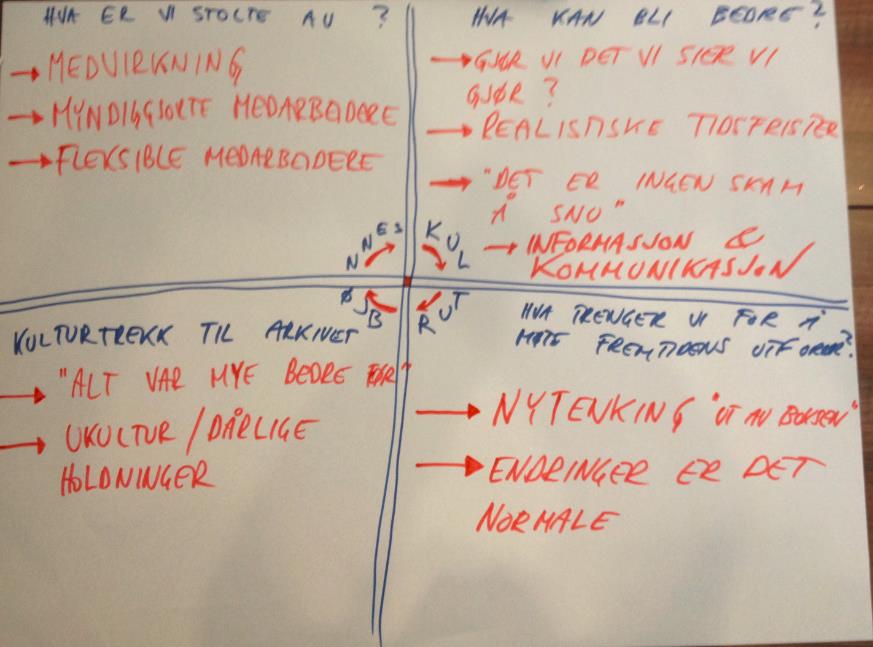 HVA ER VI STOLTE AV ?
→ MEDVIRKNING
→ MYNDIGGJORTE MEDARBEIDERE
→ FLEKSIBLE MEDARBEIDERE
HVA KAN BLI BEDRE?
→ GJØR VI DET VI SIER VI
GJØR ?
→ REALISTISKE TIDSFRISTER
→ "DET ER INGEN SKAM
Å SNU"
→ INFORMASJON &
KOMMUNIKASJON
KULTUR
BJØNNES
KULTURTREKK TIL ARKIVET
→ "ALT VAR MYE BEDRE FØR"
→ UKULTUR/DÅRLIGE
HOLDNINGER
HVA TRENGER VI FOR Å
MØTE FREMTIDENS UTFORDR?
→ NYTENKING "UT AV BOKSEN"
→ ENDRINGER ER DET
NORMALE